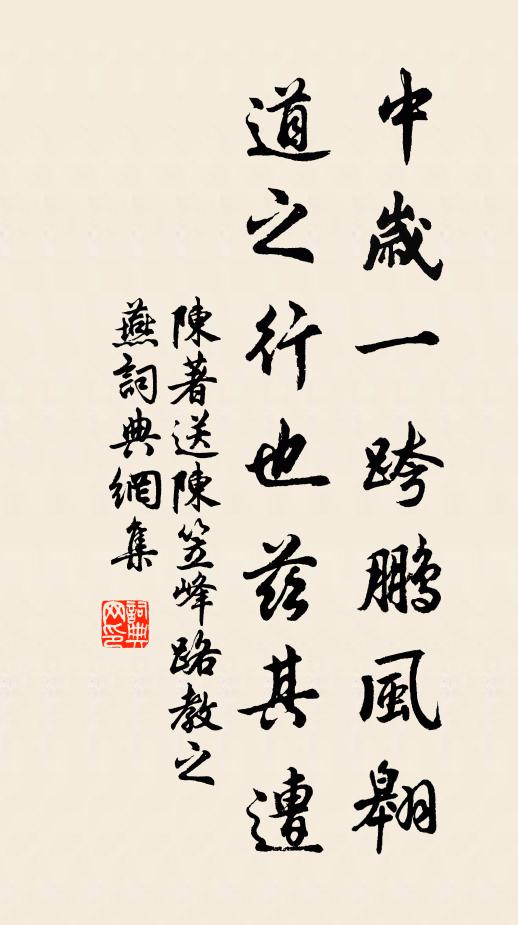 中歲一跨鵬風翺
道之行也茲其遭
陳著送陳笠峰路教之
燕詞典網集
詞典
网印